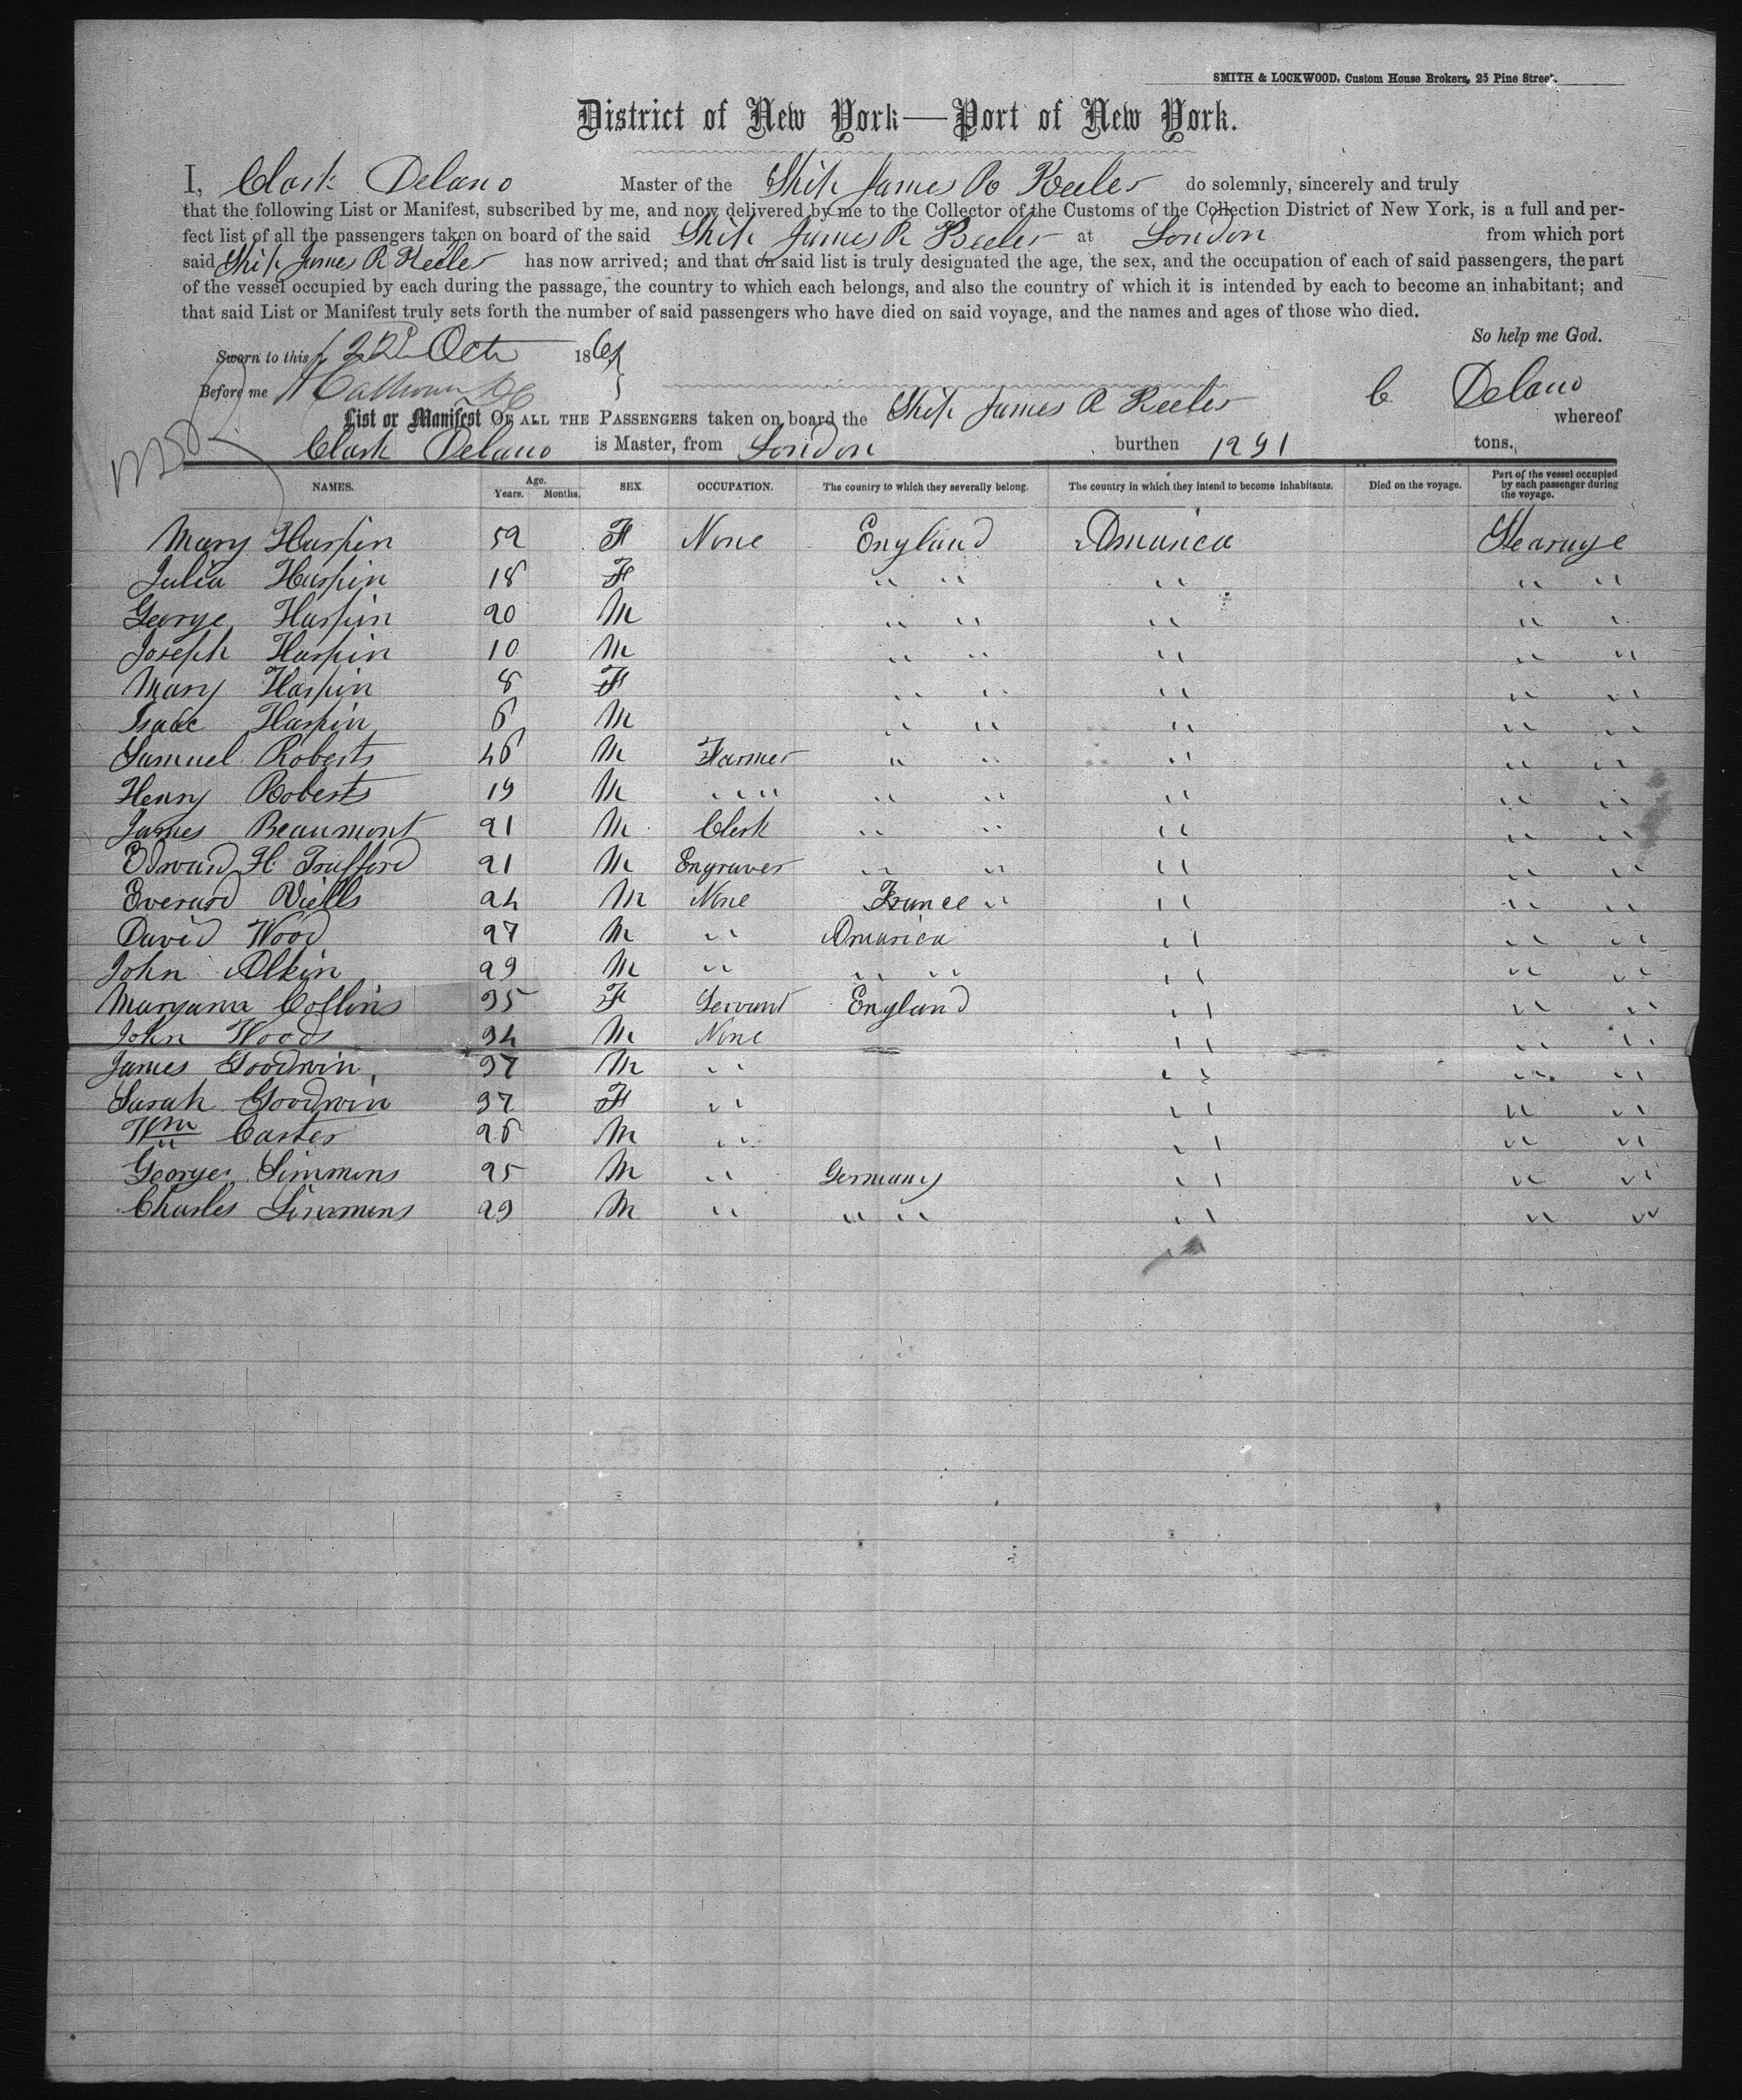 SMITH & LOCKWOOD, Custom House Brokers, 25 Pine Street.
District of New York—Port of New York.
I, Clark Delano Master of the Ship James R Keeler do solemnly, sincerely and truly
that the following List or Manifest, subscribed by me, and now delivered by me to the Collector of the Customs of the Collection District of New York, is a full and per-
fect list of all the passengers taken on board of the said Ship James R Keeler at London from which port
said Ship James R Keeler has now arrived; and that on said list is truly designated the age, the sex, and the occupation of each of said passengers, the part
of the vessel occupied by each during the passage, the country to which each belongs, and also the country of which it is intended by each to become an inhabitant; and
that said List or Manifest truly sets forth the number of said passengers who have died on said voyage, and the names and ages of those who died.
So help me God.
Sworn to this 22d Octr 186
Before me Calhoun C Delano
List or Manifest OF ALL THE PASSENGERS taken on board the Ship James R Keeler whereof
Clark Delano is Master, from London burthen 1291 tons.
NAMES. Age. Years. Months. SEX. OCCUPATION. The country to which they severally belong. The country in which they intend to become inhabitants. Died on the voyage. Part of the vessel occupied by each passenger during the voyage.
Mary Harpin 52 F None England America Stearage
Julia Harpin 18 F " " " " "
George Harpin 20 M " " " " "
Joseph Harpin 10 M " " " " "
Mary Harpin 8 F " " " " "
Isaac Harpin 6 M " " " " "
Samuel Roberts 46 M Farmer " " " " "
Henry Roberts 19 M " " " " " " "
James Beaumont 21 M Clerk " " " " "
Edward H. Trafford 21 M Engraver " " " " "
Everard Viells 24 M None France " " " "
David Wood 27 M " America " " "
John Alkin 29 M " " " " " "
Maryanna Collins 35 F Servant England " " "
John Woods 34 M None " " "
James Goodwin 37 M " " " "
Sarah Goodwin 37 F " " " "
Wm Carter 26 M " " " "
George Simmons 25 M " Germany " " "
Charles Simmons 29 M " " " " " "